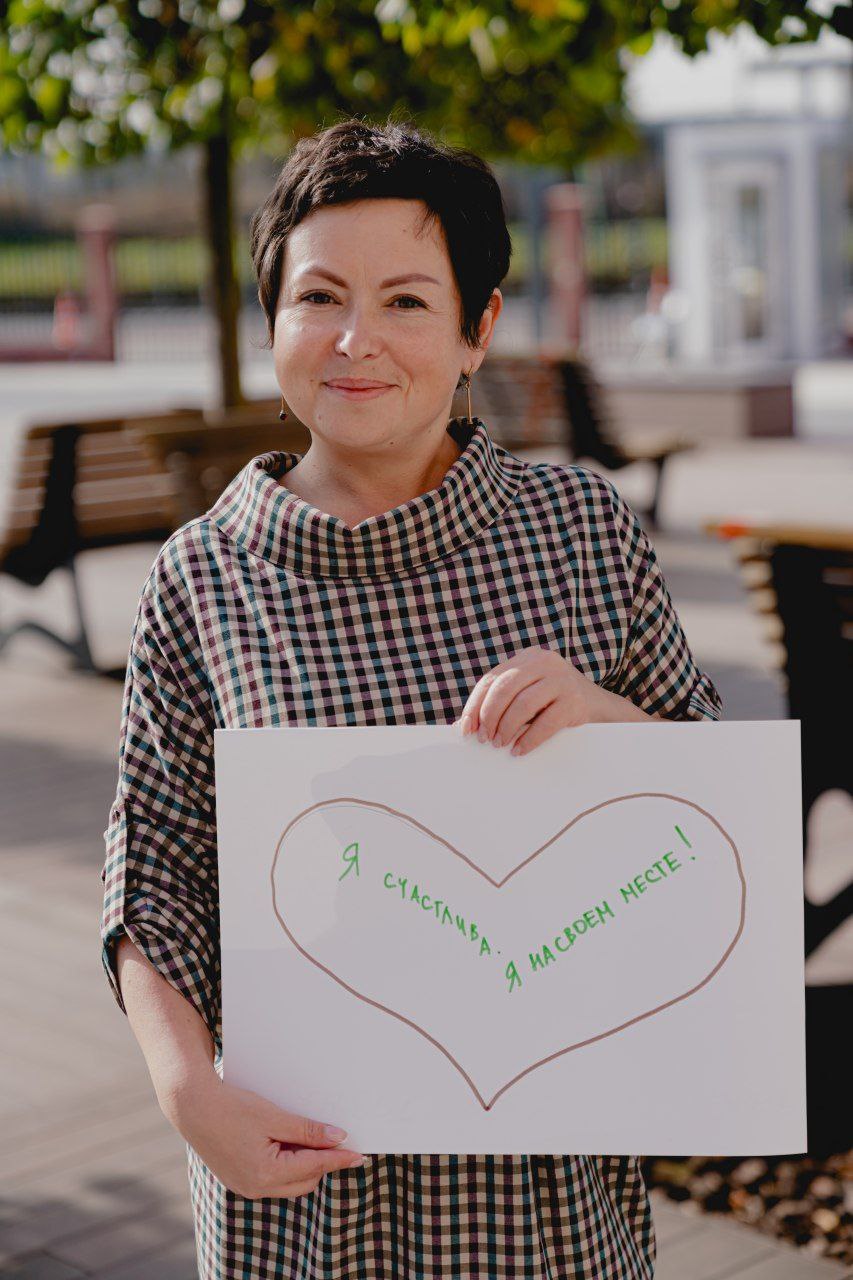 Я СЧАСТЛИВА.
Я НА СВОЕМ МЕСТЕ!